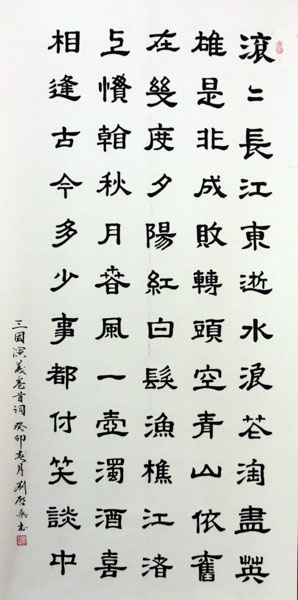 滾〻長江東逝水浪花淘盡英
雄是非成敗轉頭空青山依舊
在幾度夕陽紅白髮漁樵江渚
上慣翰秋月春風一壺濁酒喜
相逢古今多少事都付笑談中
三國演義卷首词 癸卯春月